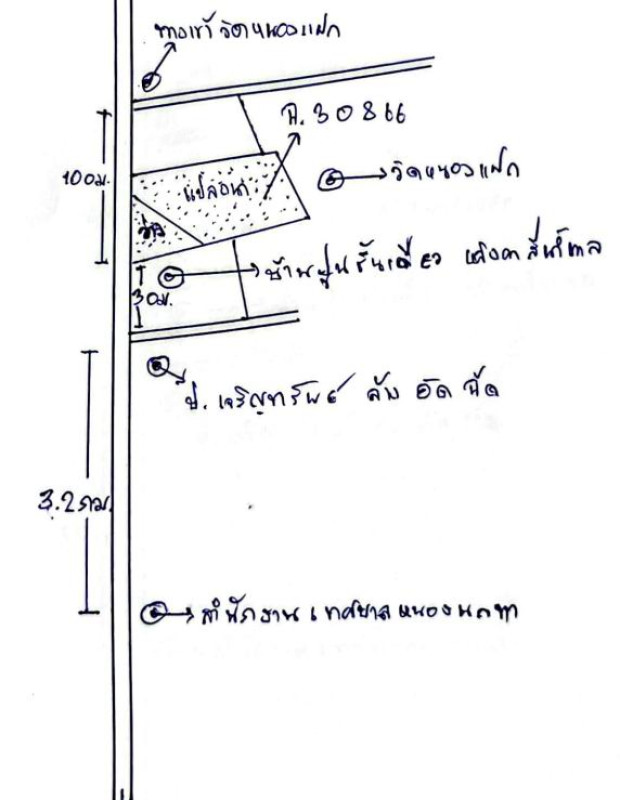 ทางเข้าวัดหนองแฝก
ฉ.30866
100ม.
แปลงนา
วัดหนองแฝก
ว่าง
บ้านปูนชั้นเดียว หลังคาสีน้ำตาล
30ม.
ป. เจริญทรัพย์ ล้าง อัด ฉีด
3.2กม.
สำนักงานเทศบาลหนอง